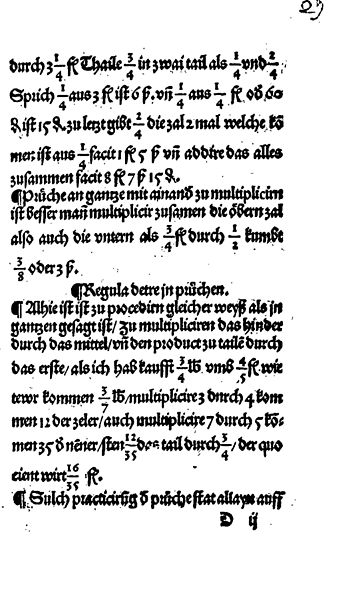 durch 3 1/4 fl Thaile 3/4 in zwai tail als 1/4 vnd 2/4
Sprich 1/4 aus 3 fl ist 6 ß. vñ 1/4 aus 1/4 fl od 60
₰ ist 15 ₰. zu letzt gibt 2/4 die zal 2 mal welche kõ
men ist aus 1/4 facit 1 fl 5 ß vñ addire das alles
zusammen facit 8 fl 7 ß 15 ₰.
¶ Prüche an gantze mit ainand zu multiplicirn
ist besser man multiplicir zusamen die obern zal
also auch die vntern als 3/4 fl durch 1/2 kumbt
3/8 oder 3 ß.
¶ Regula detre in prüchen.
¶ Alhie ist ist zu procedirn gleicher weyß als in
gantzen gesagt ist / Zu multipliciren das hinder
durch das mittel / vñ den product zu tailẽ durch
das erste / als ich hab kaufft 3/4 lb vmb 4/5 fl wie
tewr kommen 3/7 lb / multiplicire 3 durch 4 kom
men 12 der zeler / auch multiplicire 7 durch 5 kõ-
men 35 d nẽner / sten 12/35 das tail durch 3/4 / der quo
cient wirt 16/35 fl.
¶ Sulch practicirũg d prüche stat allayn auff
D ij